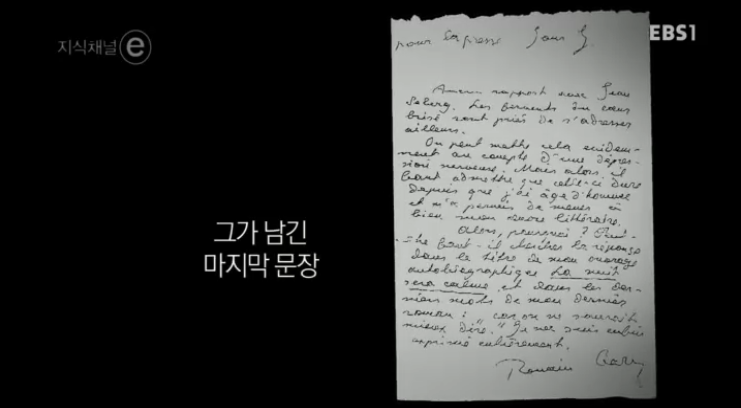 지식채널 e
EBS1
그가 남긴
마지막 문장
pour la presse Jour J.
Aucun rapport avec Jean
Seberg. Les fervents du cœur
brisé sont priés de s'adresser
ailleurs.
On peut mettre cela évidem-
ment au compte d'une dépres-
sion nerveuse. Mais alors, il
faut admettre que celle-ci dure
depuis que j'ai âge d'homme
et m'a permis de mener à
bien mon œuvre littéraire.
Alors, pourquoi ? Peut-
-être faut-il chercher la réponse
dans le titre de mon ouvrage
autobiographique La nuit
sera calme et dans les der-
niers mots de mon dernier
roman : car on ne saurait
mieux dire." Je me suis enfin
exprimé entièrement.
Romain Gary